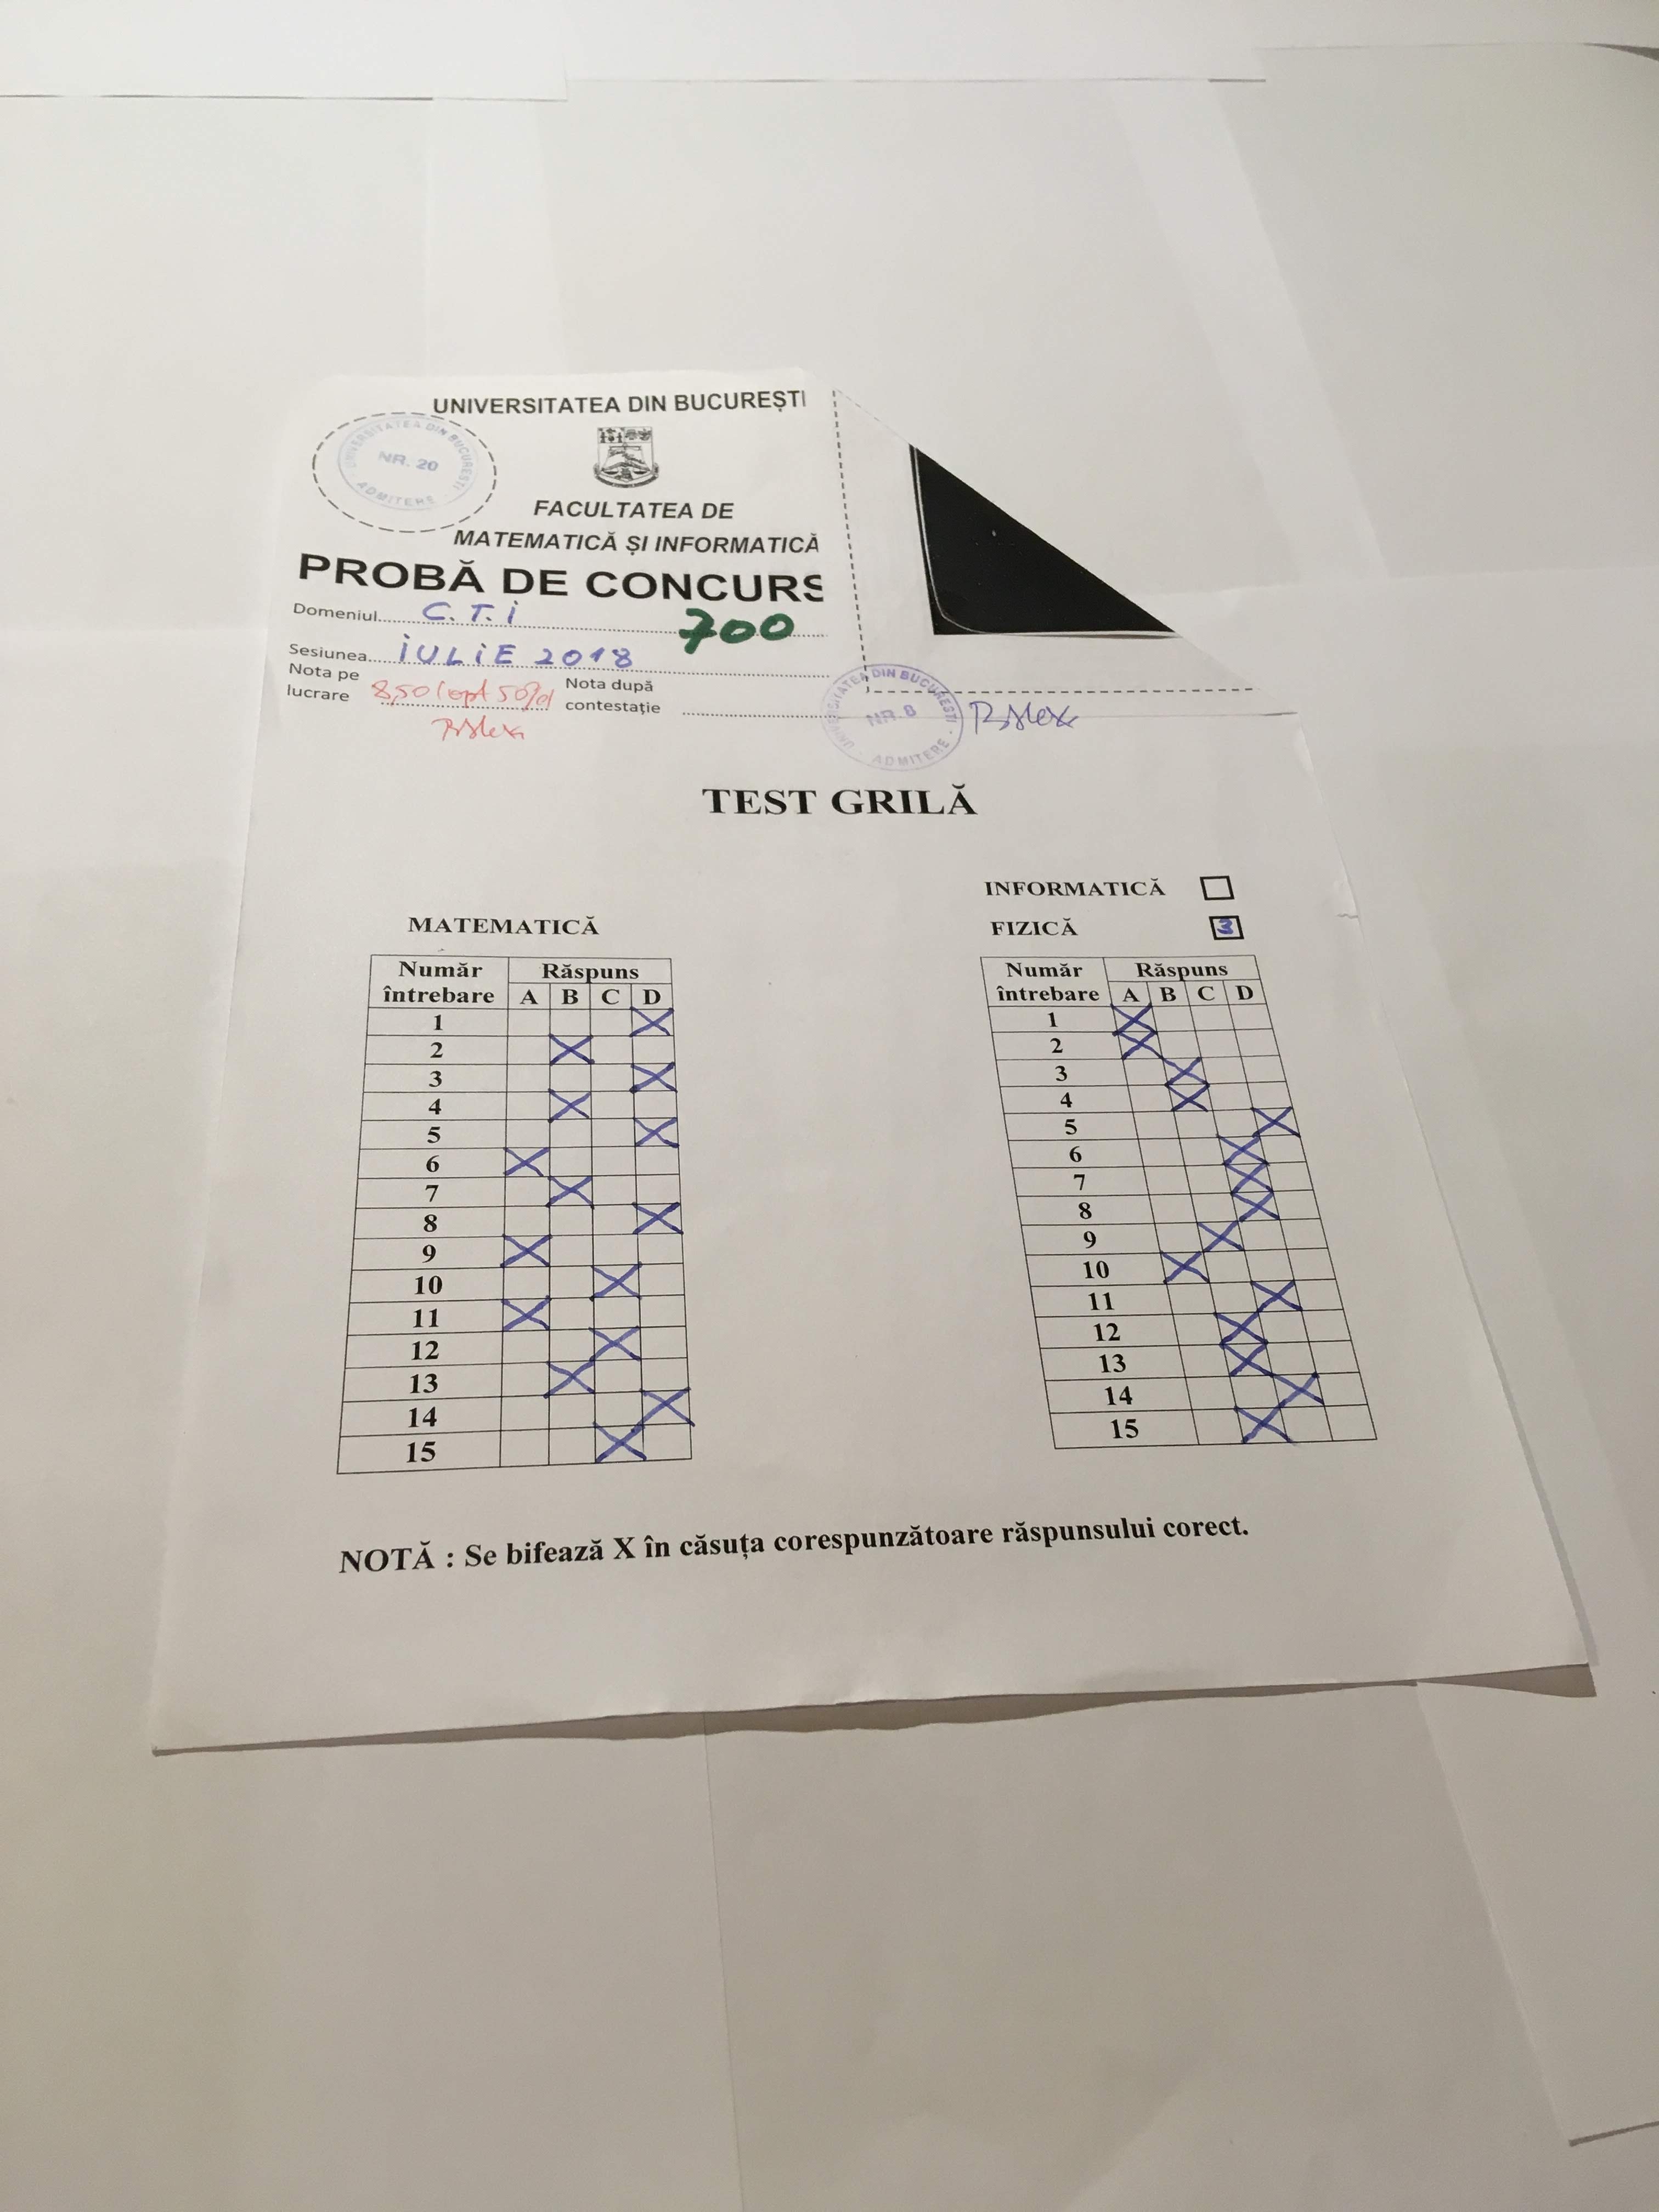 UNIVERSITATEA DIN BUCUREȘTI
UNIVERSITATEA DIN BUCUREȘTI
NR. 20
ADMITERE
FACULTATEA DE
MATEMATICĂ ȘI INFORMATICĂ
PROBĂ DE CONCURS
Domeniul C.T.I
700
Sesiunea IULIE 2018
Nota pe
lucrare 8,50 (opt 50%)
Nota după
contestație
UNIVERSITATEA DIN BUCUREȘTI
NR. 8
ADMITERE
TEST GRILĂ
INFORMATICĂ
MATEMATICĂ
FIZICĂ 3
Număr Răspuns
întrebare A B C D
1 X
2 X
3 X
4 X
5 X
6 X
7 X
8 X
9 X
10 X
11 X
12 X
13 X
14 X
15 X
Număr Răspuns
întrebare A B C D
1 X
2 X
3 X
4 X
5 X
6 X
7 X
8 X
9 X
10 X
11 X
12 X
13 X
14 X
15 X
NOTĂ : Se bifează X în căsuța corespunzătoare răspunsului corect.